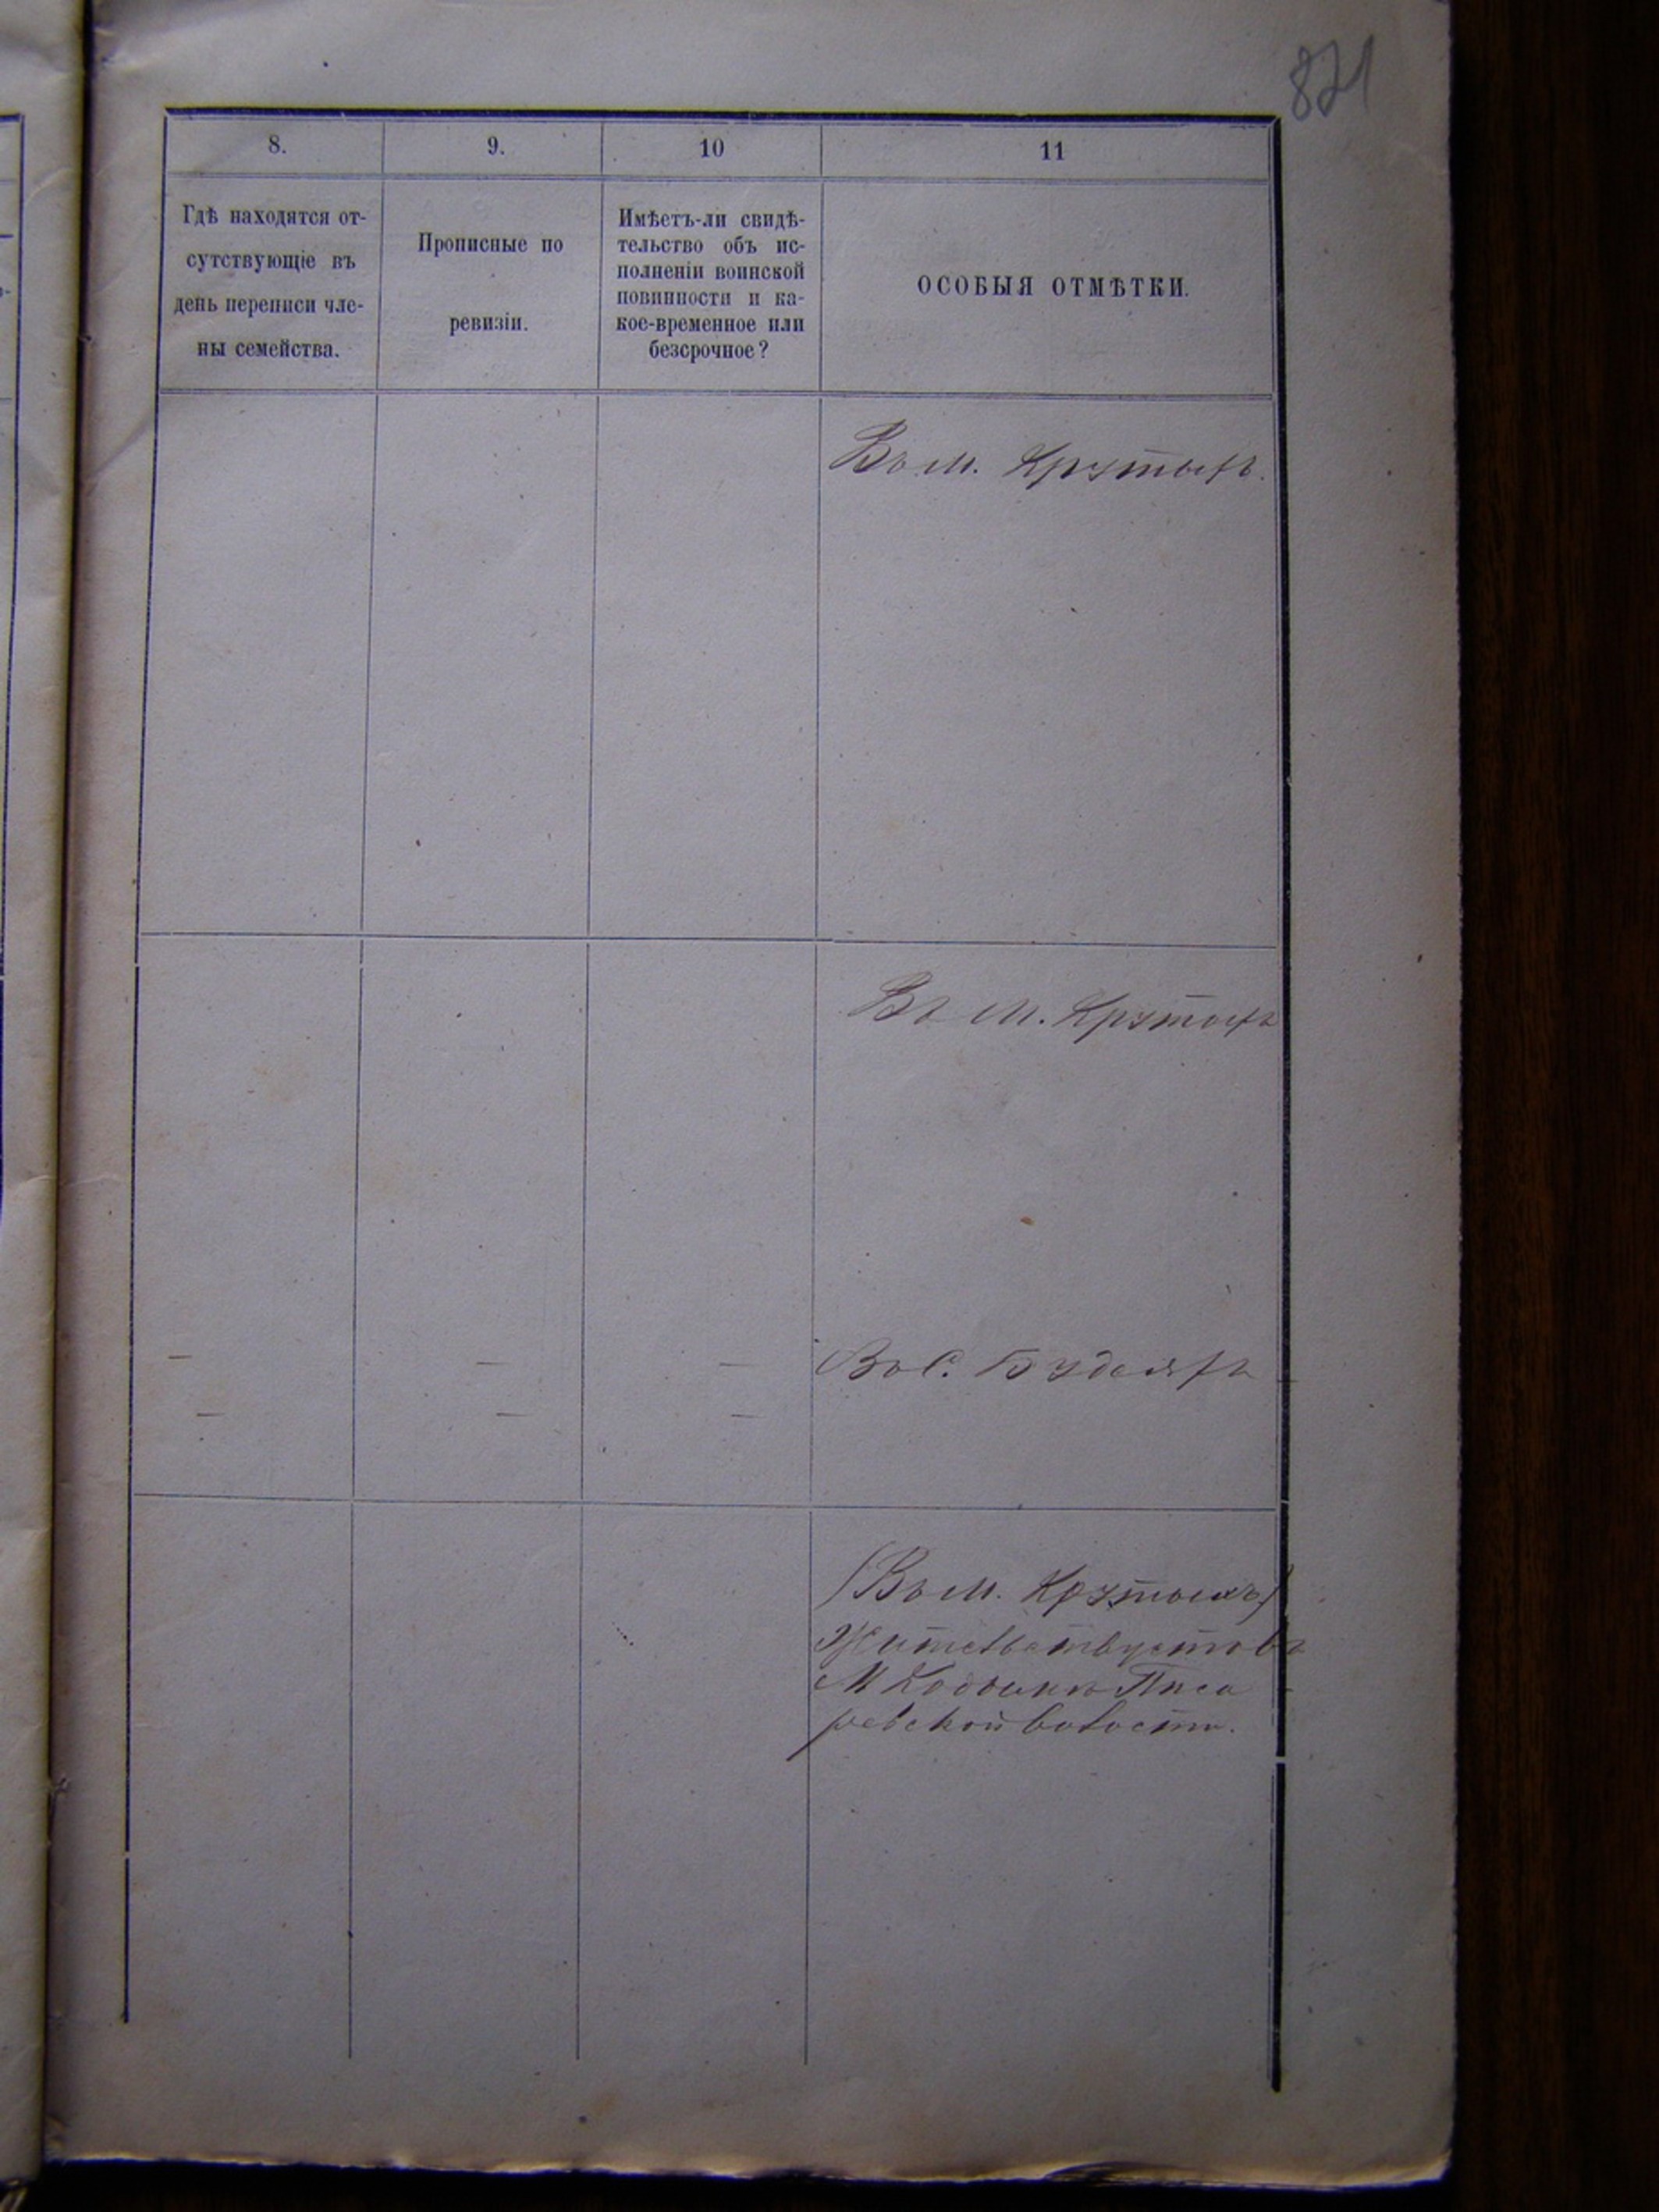 821
8.
9.
10
11
Гдѣ находятся от-
сутствующіе въ
день переписи чле-
ны семейства.
Прописные по
ревизіи.
Имѣетъ-ли свидѣ-
тельство объ ис-
полненіи воинской
повинности и ка-
кое-временное или
безсрочное?
ОСОБЫЯ ОТМѢТКИ.
Въ м. Крутыхъ.
Въ м. Крутыхъ
— — — Въ С. Будаяхъ
— — —
(Въ м. Крутыхъ)
Жительствуетъ въ
М Кодыми Писа
ревской волости.